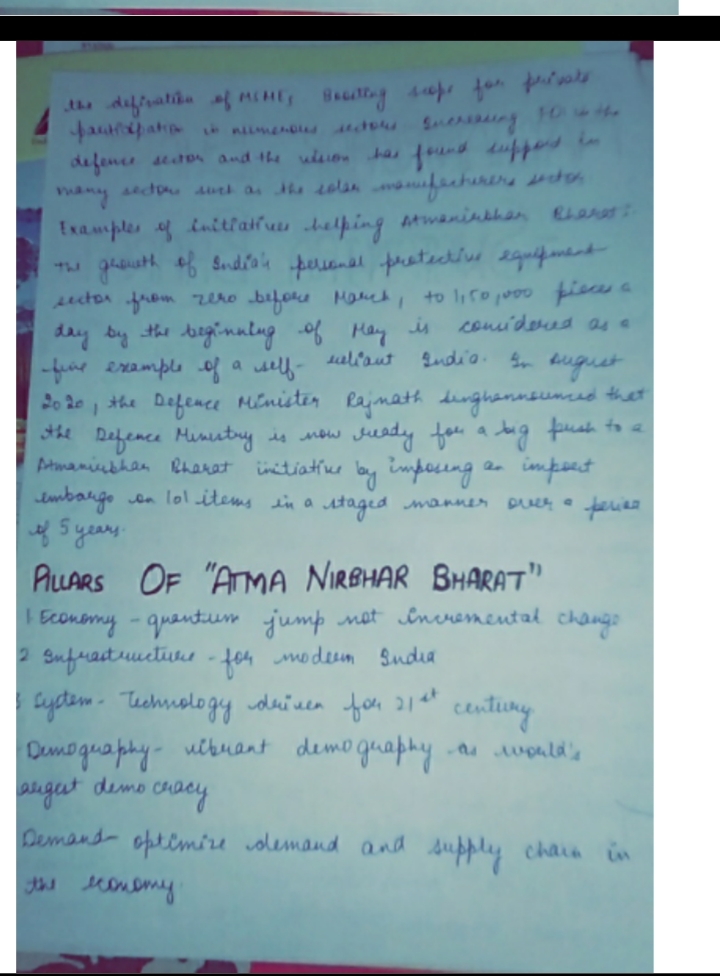 the defination of MSME, Boosting scope for private
participation in numerous sectors Increasing FDI in the
defence sector and the vision has found support in
many sectors such as the solar manufacturers sector
Examples of initiatives helping Atmanirbhar Bharat:
the growth of India's personal protective equipment
sector from zero before March, to 1,50,000 pieces a
day by the beginning of May is considered as a
fine example of a self-reliant India. In August
2020, the Defence Minister Rajnath Singh announced that
the Defence Ministry is now ready for a big push to a
Atmanirbhar Bharat initiative by imposing an import
embargo on 101 items in a staged manner over a period
of 5 years.
PILLARS OF "ATMA NIRBHAR BHARAT"
1 Economy - quantum jump not incremental change
2 Infrastructure - for modern India
System - Technology driven for 21st century
Demography - vibrant demography as world's
largest democracy
Demand - optimize demand and supply chain in
the economy.